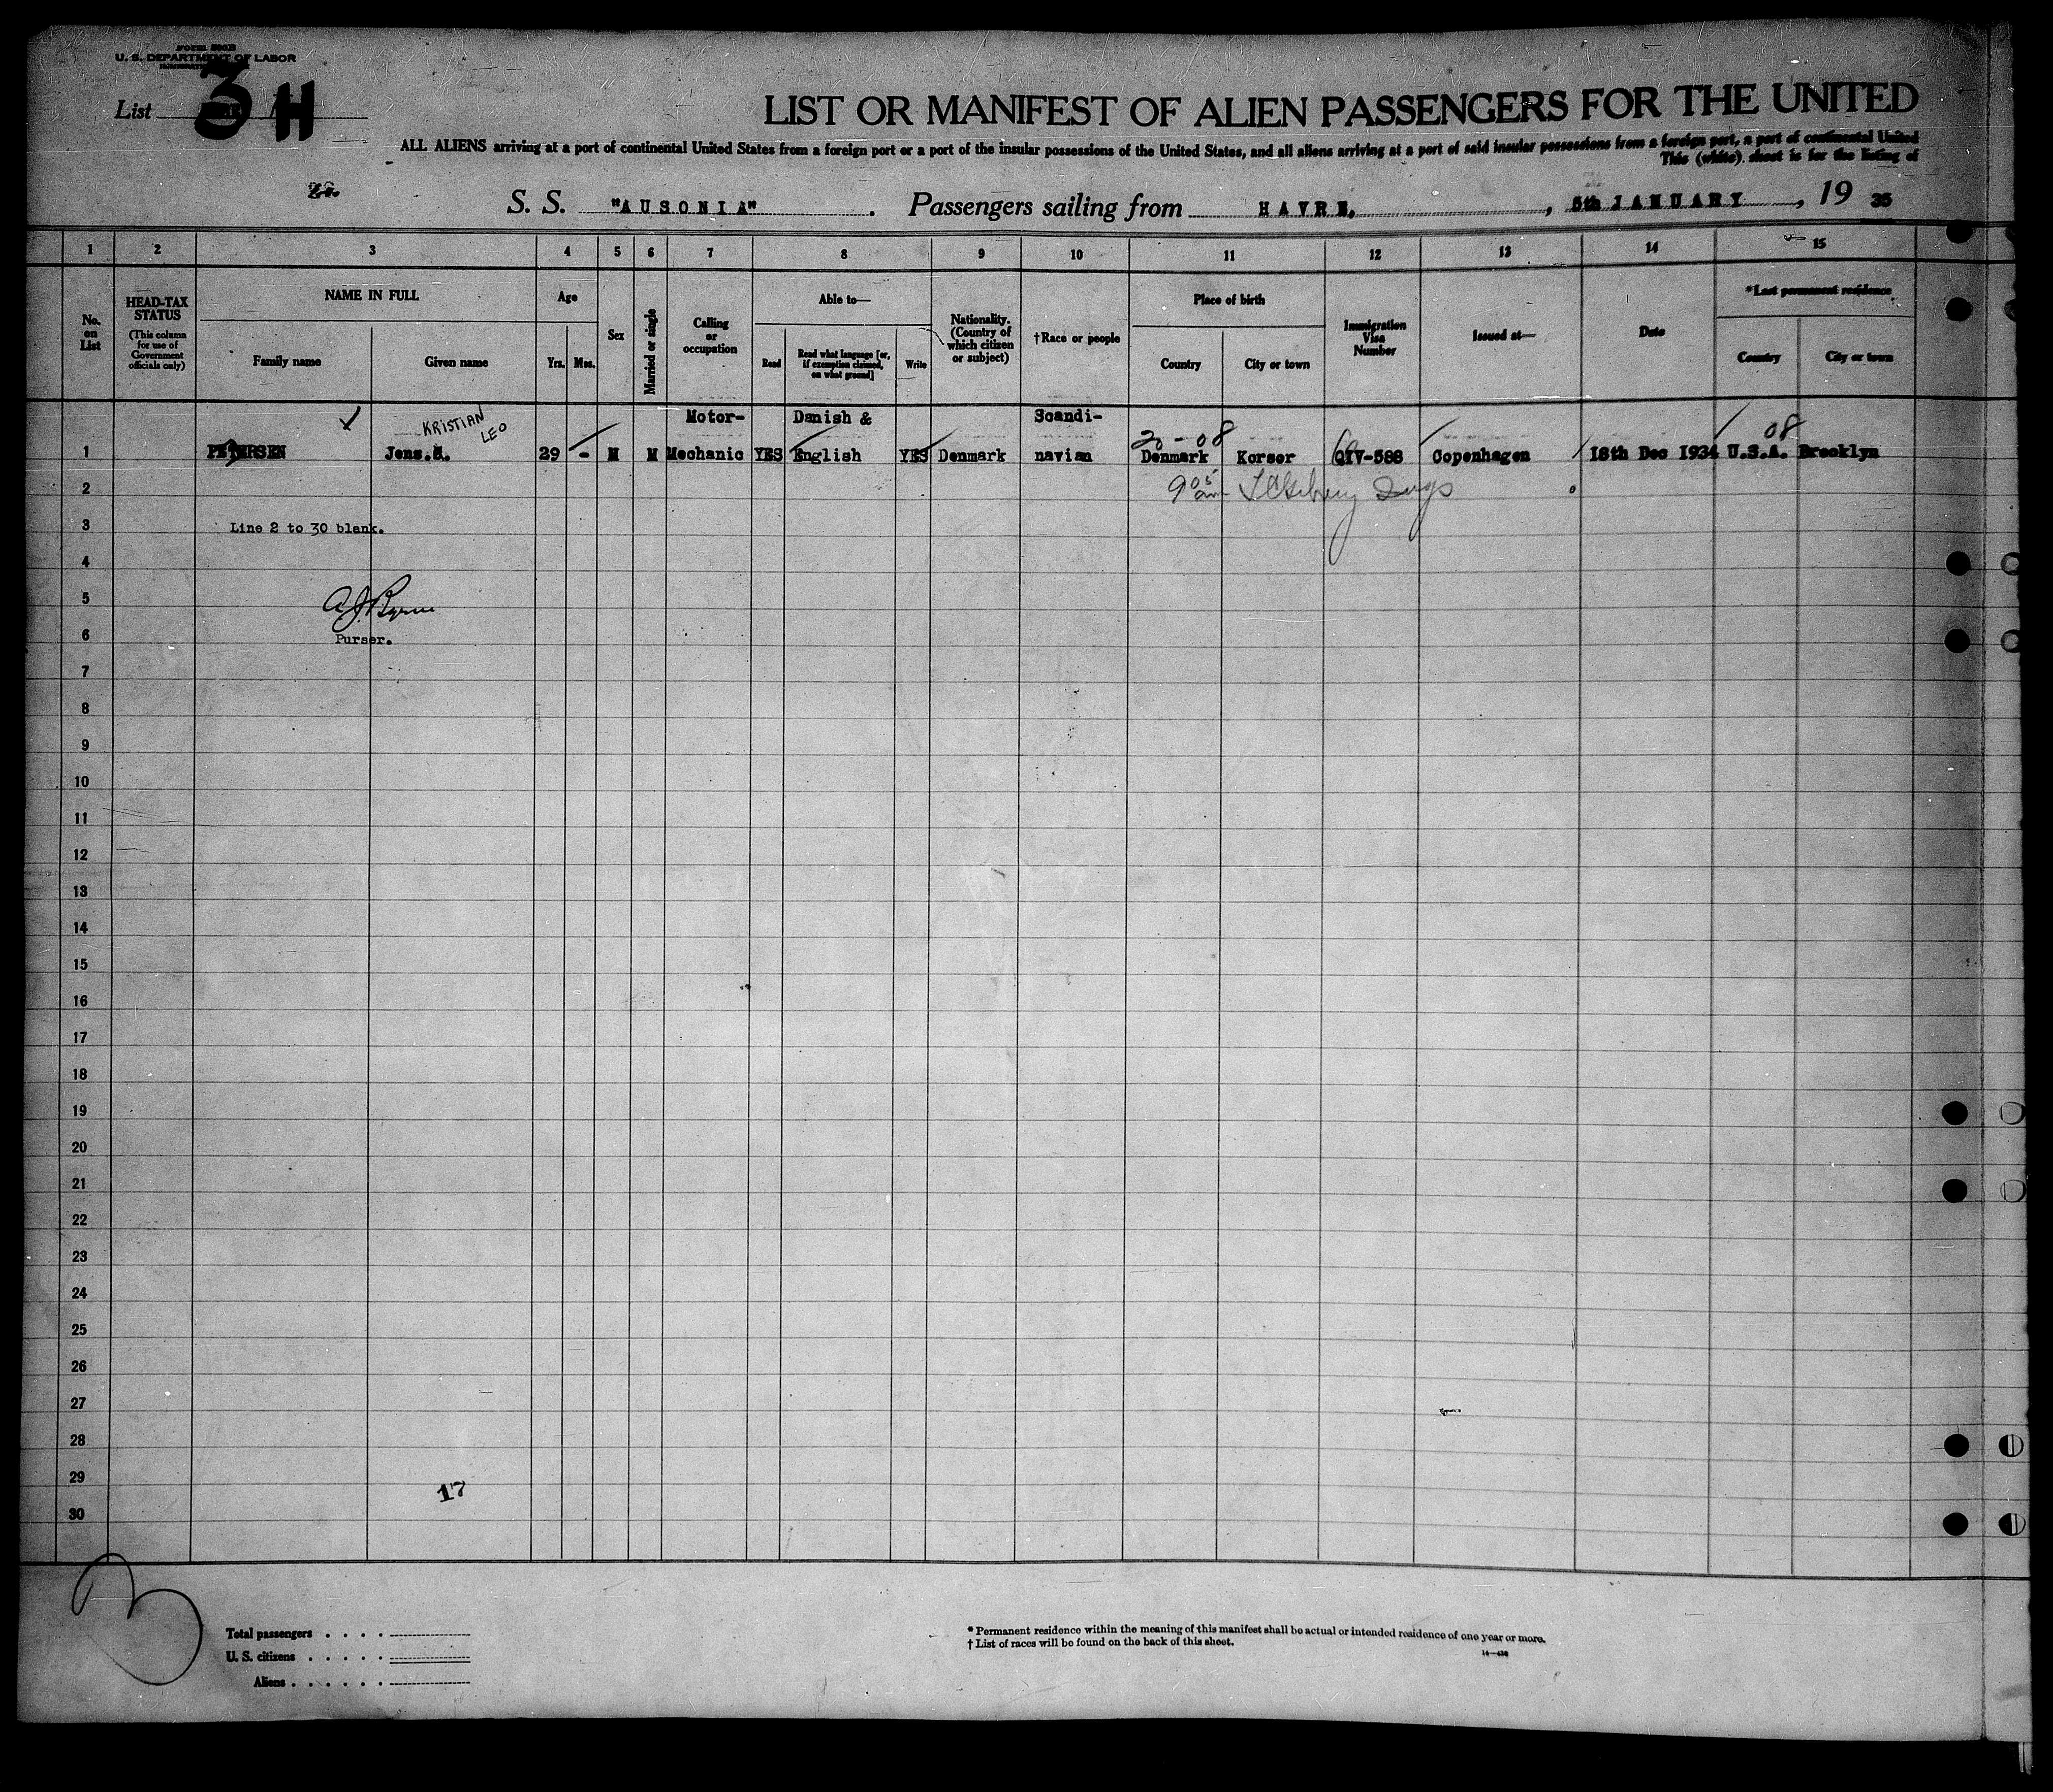 U. S. DEPARTMENT OF LABOR
List 3 H
LIST OR MANIFEST OF ALIEN PASSENGERS FOR THE UNITED
ALL ALIENS arriving at a port of continental United States from a foreign port or a port of the insular possessions of the United States, and all aliens arriving at a port of said insular possessions from a foreign port, a port of continental United
This (white) sheet is for the listing of
S. S. "AUSONIA" . Passengers sailing from HAVRE, , 5th JANUARY , 19 35
1 2 3 4 5 6 7 8 9 10 11 12 13 14 15
No. on List
HEAD-TAX STATUS
(This column for use of Government officials only)
NAME IN FULL
Family name
Given name
Age
Yrs.
Mos.
Sex
Married or single
Calling or occupation
Able to—
Read
Read what language [or, if exemption claimed, on what ground]
Write
Nationality. (Country of which citizen or subject)
†Race or people
Place of birth
Country
City or town
Immigration Visa Number
Issued at—
Date
*Last permanent residence
Country
City or town
KRISTIAN LEO
Motor- Danish & Scandi- 20-08 08
1 PETERSEN Jens. 29 - M M Mechanic YES English YES Denmark navian Denmark Korsor QIV-588 Copenhagen 18th Dec 1934 U.S.A. Brooklyn
2 9 05 am
3 Line 2 to 30 blank.
4
5 A J Byrne
6 Purser.
7
8
9
10
11
12
13
14
15
16
17
18
19
20
21
22
23
24
25
26
27
28
29 17
30
3
Total passengers . . . .
U. S. citizens . . . . .
Aliens . . . . . .
* Permanent residence within the meaning of this manifest shall be actual or intended residence of one year or more.
† List of races will be found on the back of this sheet.